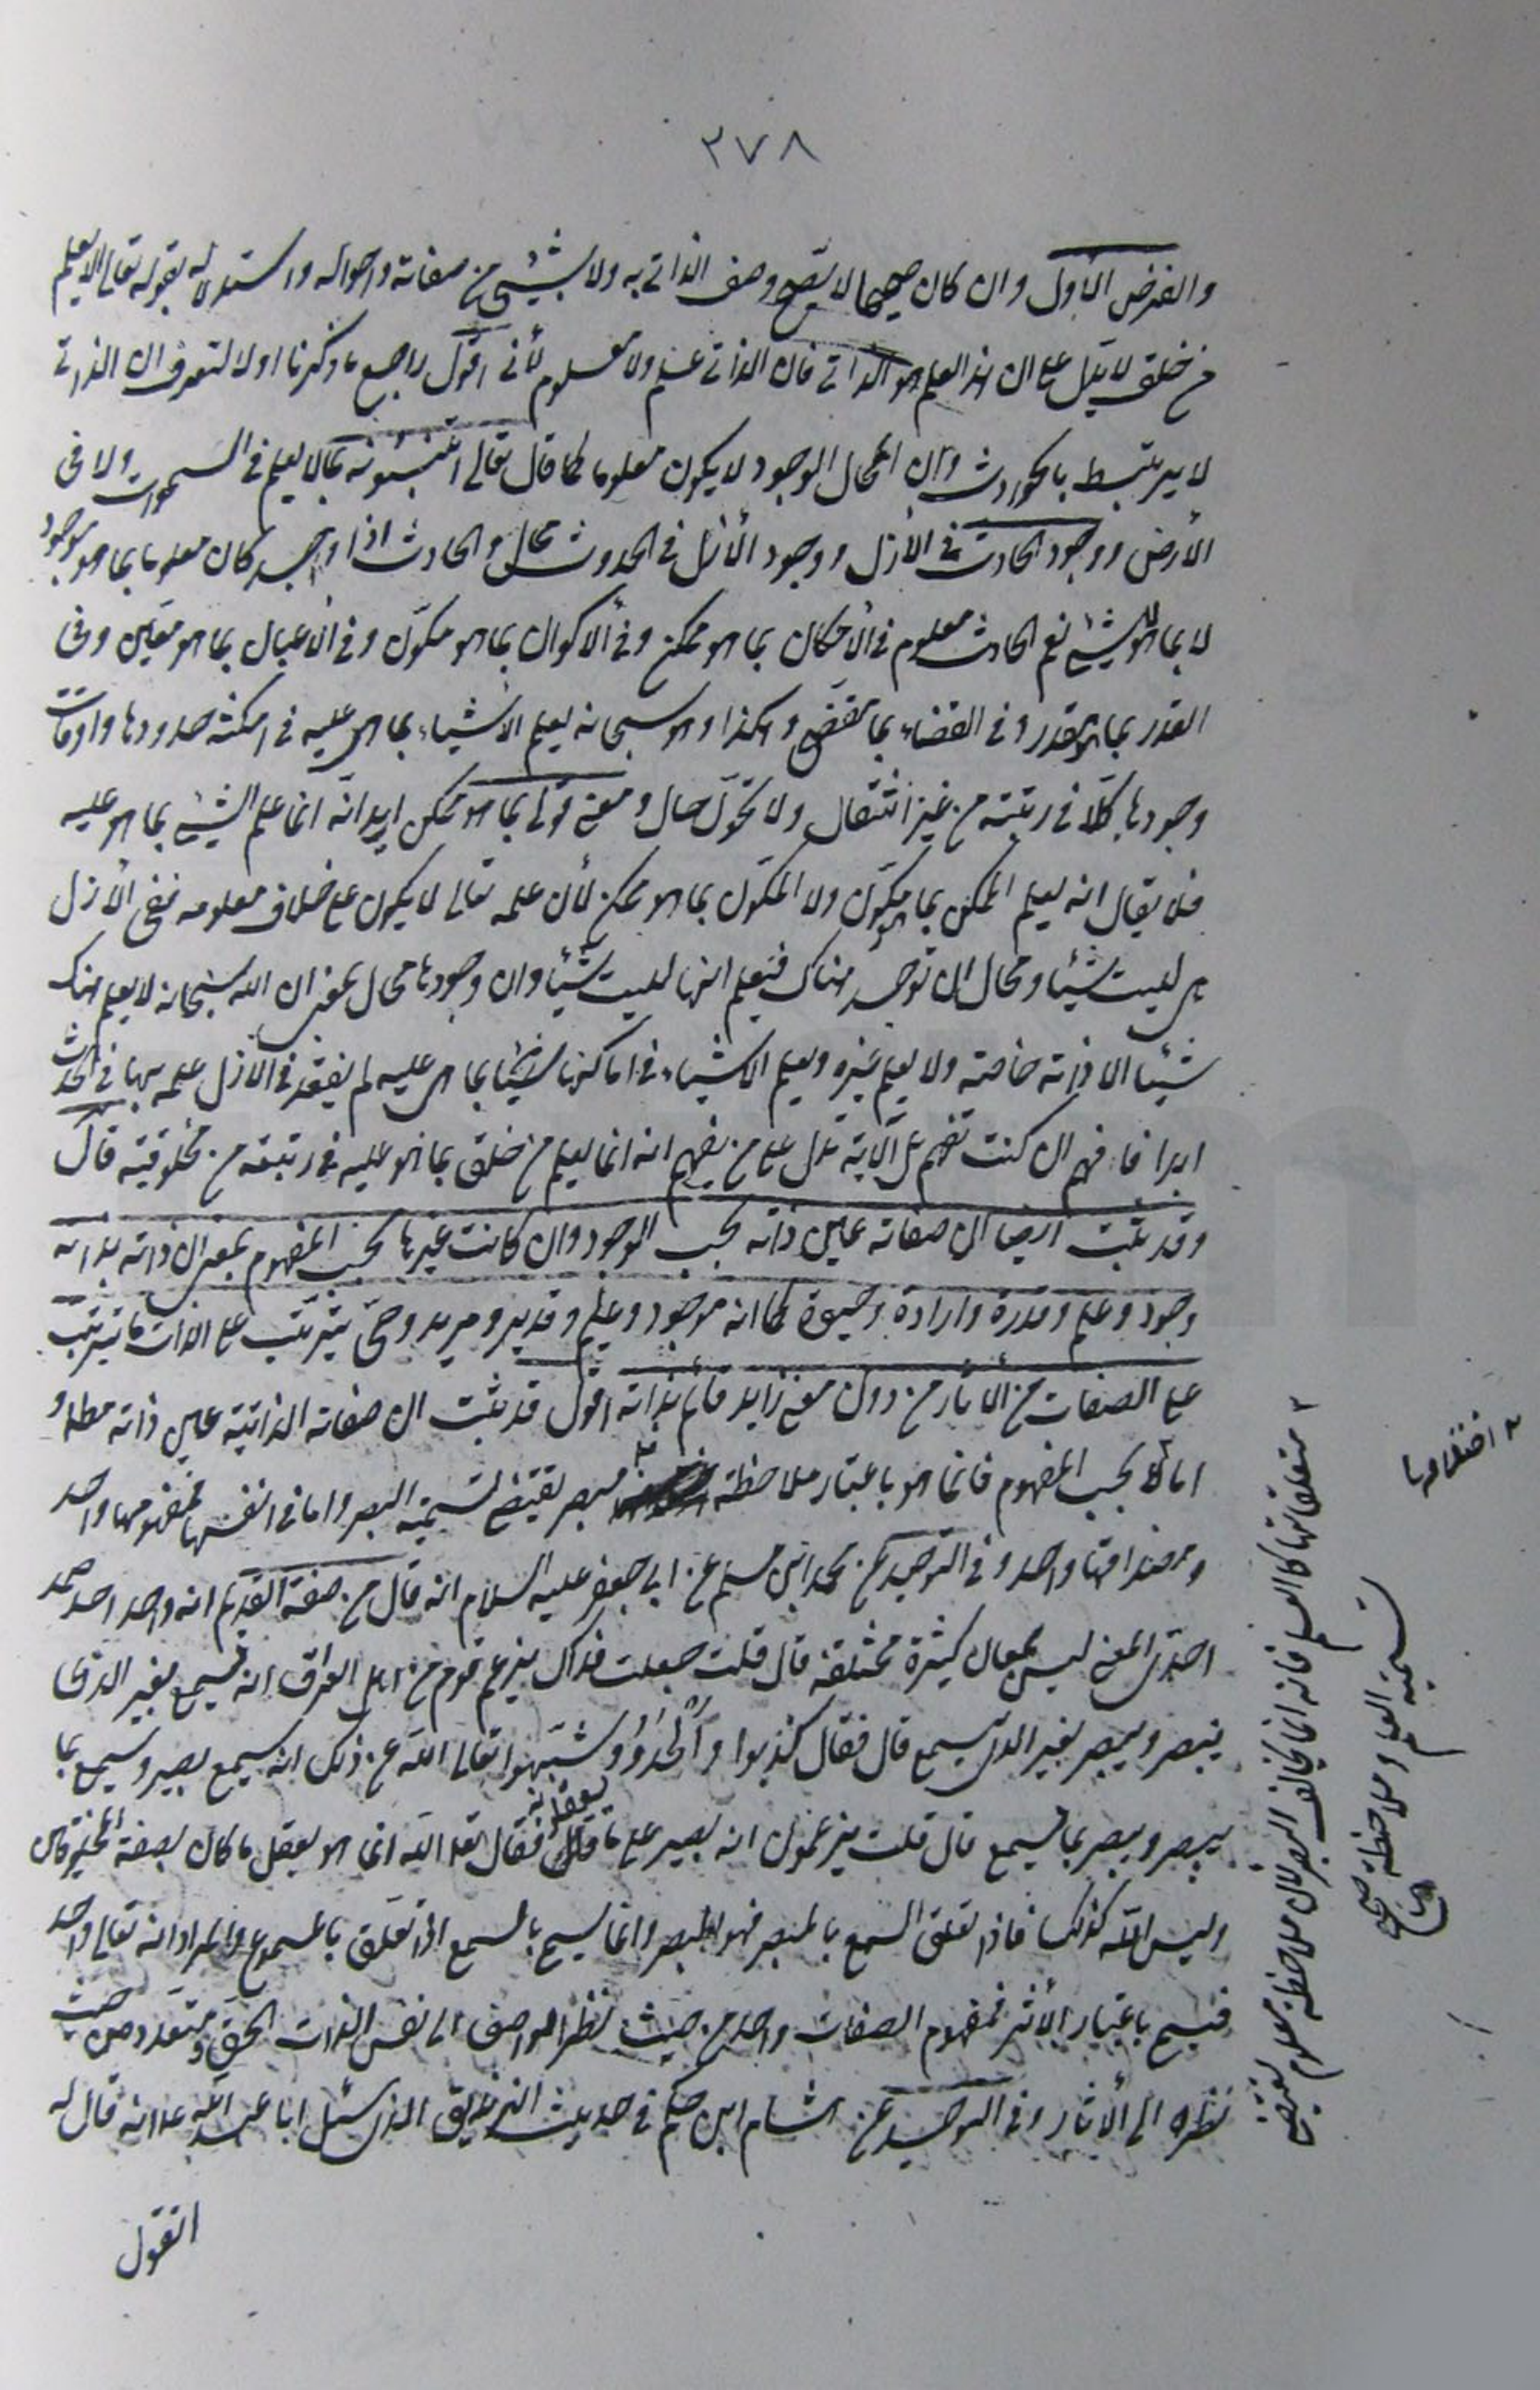 ٣٧٨
والفرض الأول وان كان صحيحا لا يصح وصف الذاتي به ولا بشيئ من صفاته واحواله واستدلاله بقوله تعالى الا يعلم
من خلق لا يدل على ان هذا العلم هو الذاتي فان الذاتي علم ولا معلوم لأني اقول راجع ما ذكرنا اولا لتعرف ان الذاتي
لا يرتبط بالحوادث وان المحال الوجود لا يكون معلوما كما قال تعالى اتنبئونه بما لا يعلم في السموات ولا في
الأرض ووجود الحادث في الأزل ووجود الأزل في الحدوث محال والحادث اذا وجد كان معلوما بما هو موجود
لا بما هو لا شيئ نعم الحادث معلوم في الأمكان بما هو ممكن وفي الأكوان بما هو مكوّن وفي الأعيان بما هو معيّن وفي
القدر بما هو مقدر وفي القضاء بما هو مقضي وهكذا وهو سبحانه يعلم الأشياء بما هي عليه في امكنة حدودها واوقات
وجودها كلّا في رتبته من غير انتقال ولا تحوّل حال ومعنى قولي بما هو ممكن اريد انّه انما علم الشيئ بما هو عليه
فلا يقال انه يعلم الممكن بما هو مكوّن ولا المكوّن بما هو ممكن لأن علمه تعالى لا يكون على خلاف معلومه ففي الأزل
هي ليست شيئا ومحال ان توجد هناك فيعلم انها ليست شيئا وان وجودها محال بمعنى ان الله سبحانه لا يعلم هناك
شيئا الا ذاته خاصة ولا يعلم غيره ويعلم الاشياء في اماكنها شيئا بما هي عليه لم يفقد في الأزل علمه بها في الحدث
ابدا فافهم ان كنت تفهم بل الآية تدل على من يفهم انه انما يعلم من خلق بما هو عليه في رتبته من مخلوقيته قال
وقد ثبت ايضا ان صفاته عين ذاته بحسب الوجود وان كانت غيرها بحسب المفهوم بمعنى ان ذاته بذاته
وجود وعلم وقدرة وارادة وحيوة كما انه موجود وعليم وقدير ومريد وحيّ يترتب على الذات ما يترتب
على الصفات من الأثار من دون معنى زايد قائم بذاته اقول قد ثبت ان صفاته الذاتية عين ذاته مطلقا و
اما بحسب المفهوم فانما هو باعتبار ملاحظة مبصر يقتضي تسمية البصر واما في انفسها فمفهومها واحد
ومصداقها واحد وفي التوحيد عن محمد ابن مسلم عن ابي جعفر عليه السلام انه قال من صفة القديم انه واحد احد صمد
احديّ المعنى ليس بمعان كثيرة مختلفة قال قلت جعلت فداك يزعم قوم من اهل العراق انه يسمع بغير الذي
يبصر ويبصر بغير الذي يسمع قال فقال كذبوا وأَلْحَدُوا وشبّهوا تعالى الله عن ذلك انه سميع بصير يسمع بما
يبصر ويبصر بما يسمع قال قلت يزعمون انه بصير على ما يعقلونه فقال تعالى الله انما هو يعقل ما كان بصفة المخلوقين
وليس الله كذلك فاذا تعلق السمع بالمبصر فهو البصر وانما يسمى بالسمع اذا تعلق بالمسموع والمراد انه تعالى واحد
فيسمى باعتبار الأثر فمفهوم الصفات واحد من حيث نظر الواصف الى نفس الذات الحق ومتعدد من حيث
نظره الى الأثار وفي التوحيد عن هشام ابن حكم في حديث الزنديق الذي سئل ابا عبد الله ع انه قال له
اتقول
متعلقاتها كالعلم فانه انما يخالف البصر لان ملاحظة معلوم تقتضي
تسمية العلم وملاحظة صح